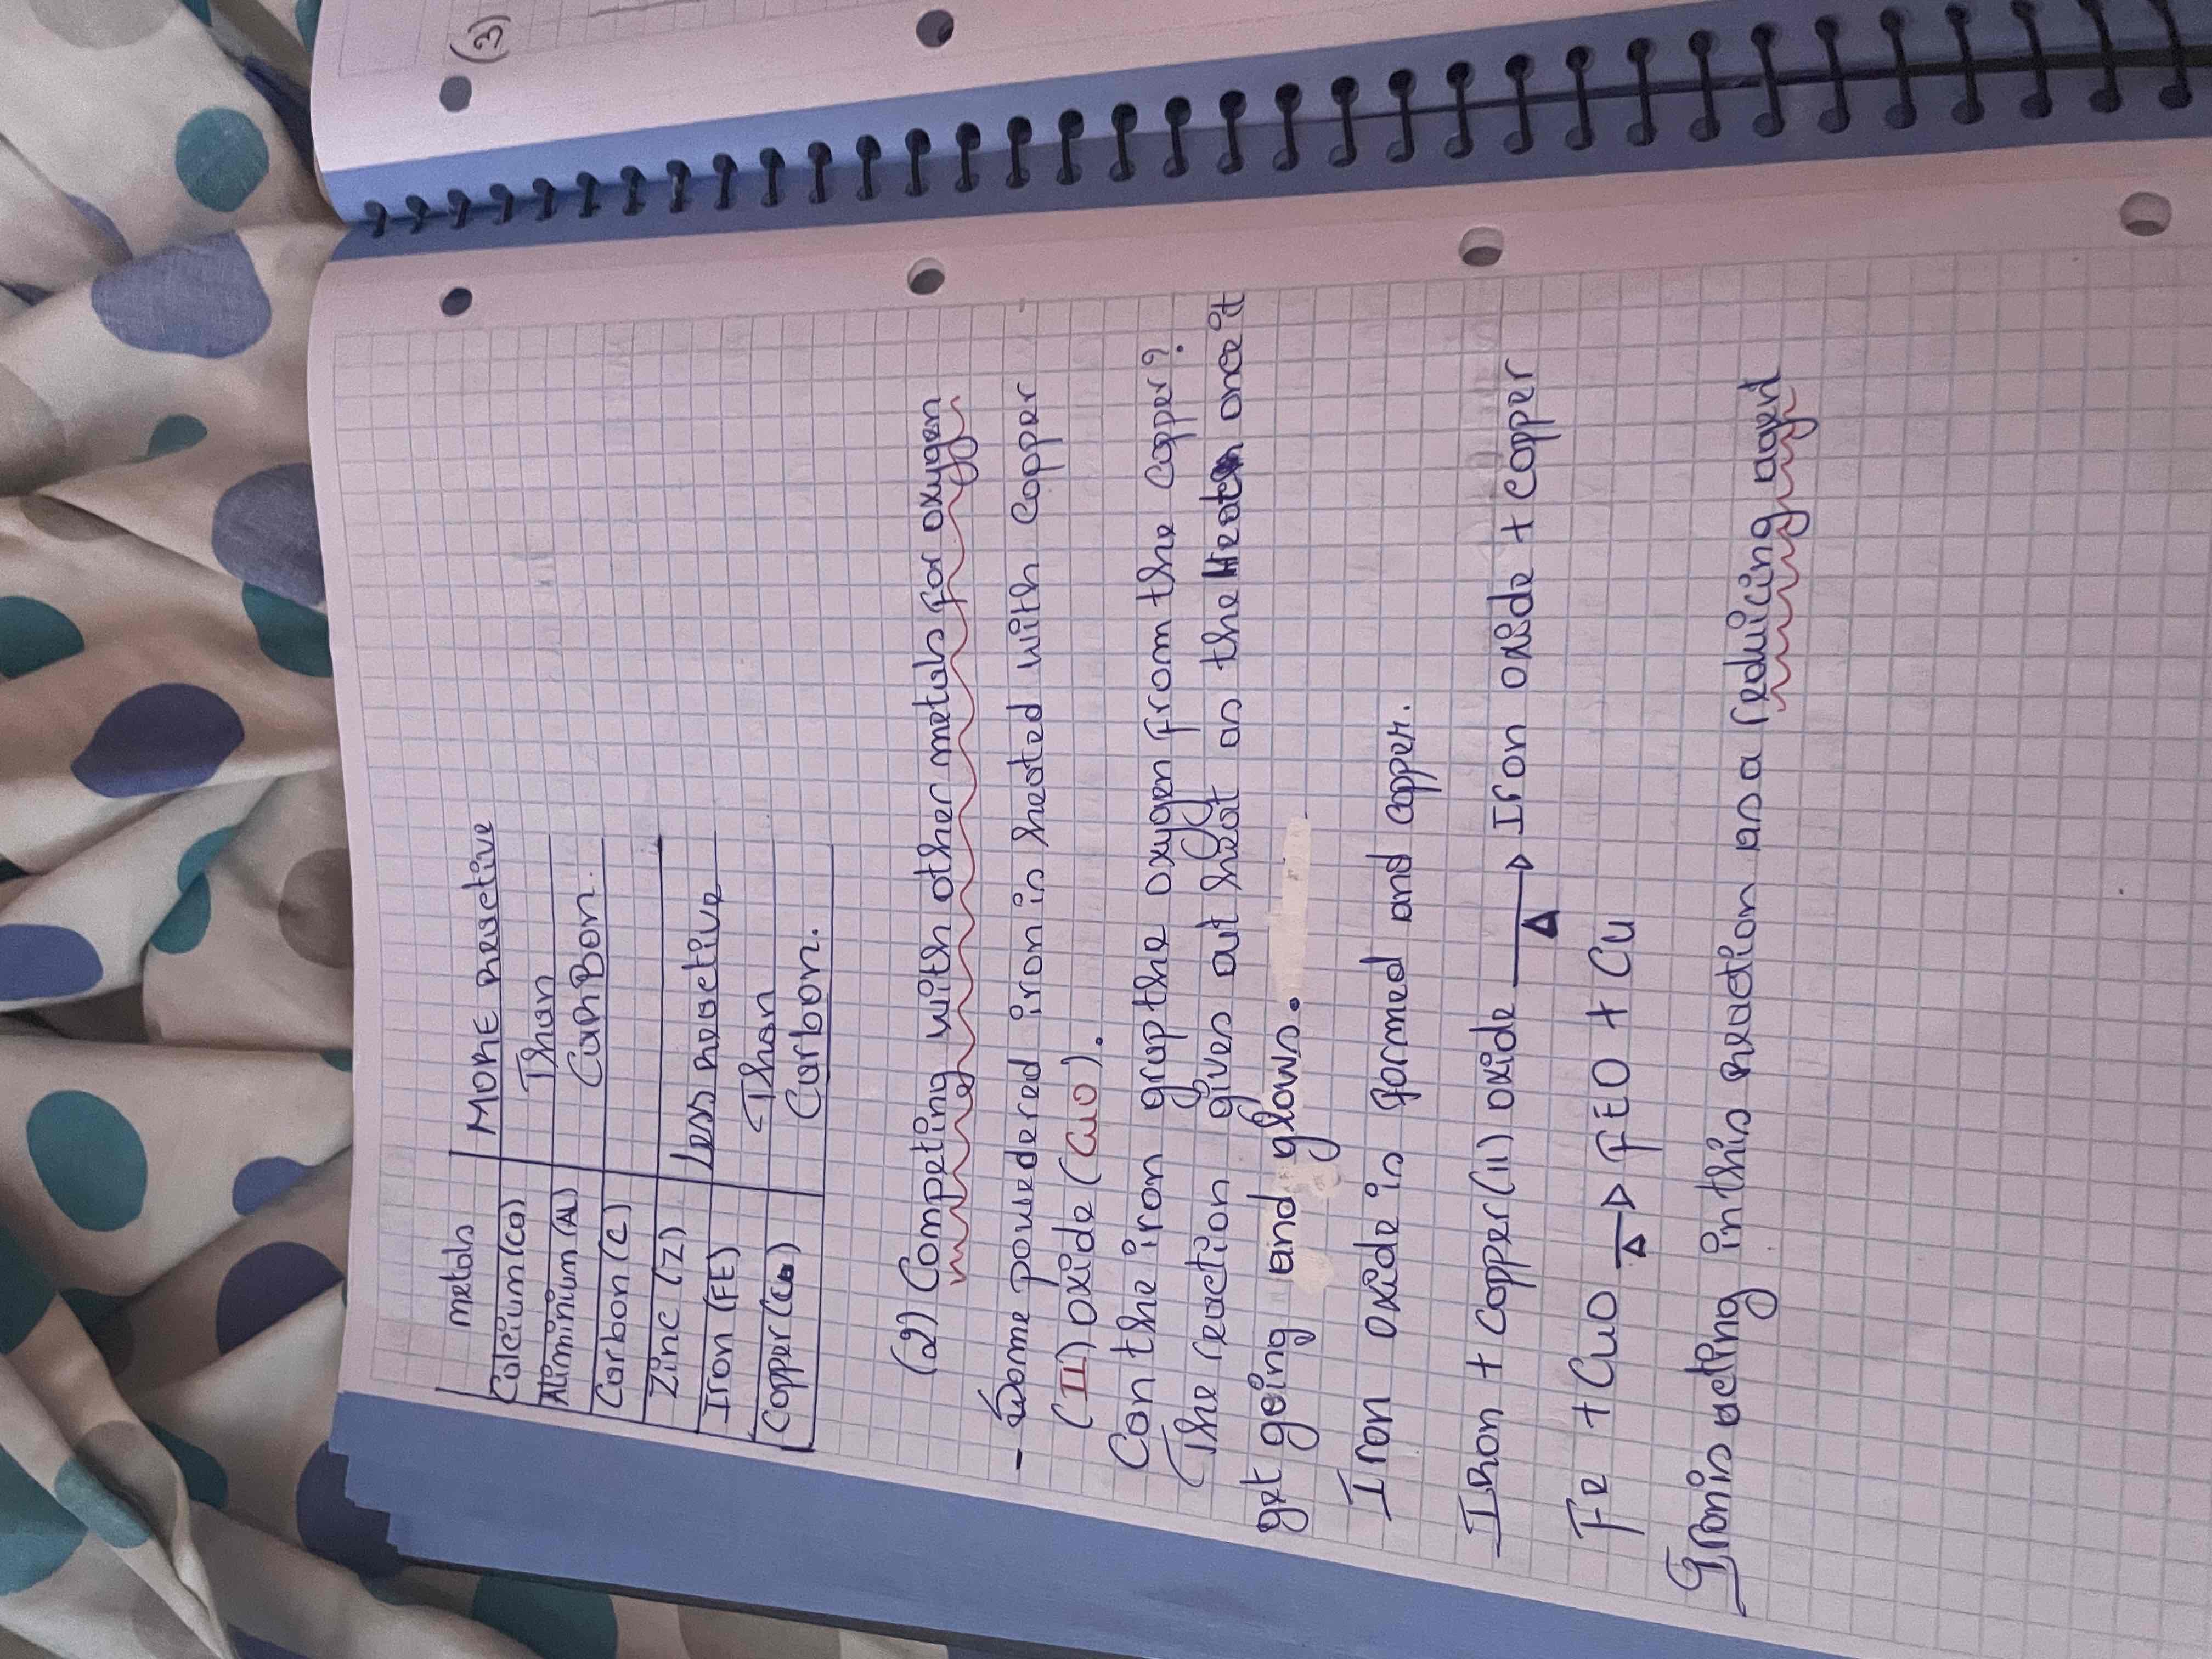 (3)
metals
Calcium (Ca) More reactive
Aliminium (AL) Than
Carbon (C) CarBon.
Zinc (Z)
Iron (FE) less reactive
Copper (Cu) Than
Carbon.
(2) Competing with other metals for oxygen
- Some powedered iron is heated with Copper
(II) oxide (CuO).
Can the iron grap the oxygen from the copper?
(The reaction gives out heat as the Heat once it
get going and glows.
Iron oxide is formed and copper.
Iron + Copper(ii) oxide —Δ→ Iron oxide + Copper
Fe + CuO —Δ→ FEO + Cu
Iron is acting in this reaction as a reducing agent